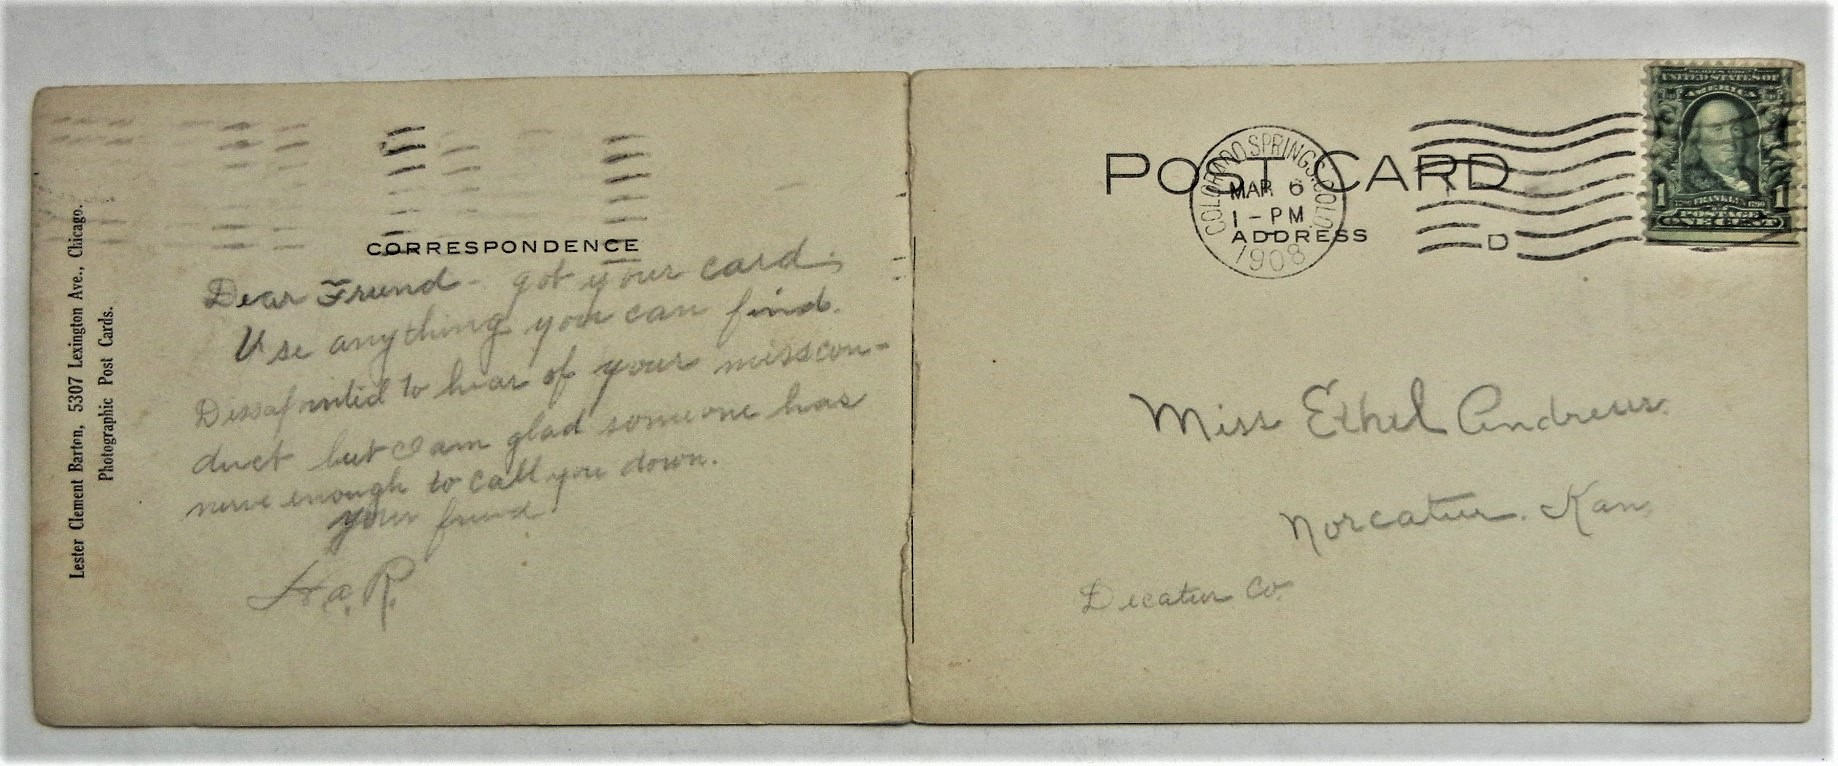 Lester Clement Barton, 5307 Lexington Ave., Chicago.
Photographic Post Cards.
CORRESPONDENCE
Dear Friend - got your card;
Use anything you can find.
Dissapointed to hear of your misscon-
duct but I am glad someone has
nerve enough to call you down.
your friend
H.a.R.
POST CARD
ADDRESS
COLORADO SPRINGS, COLO.
MAR 6
1 - PM
1908
D
SERIES 1902
UNITED STATES OF
AMERICA
1 1
FRANKLIN
POSTAGE
ONE CENT
Miss Ethel Andrews.
Norcatur. Kan.
Decatur Co.